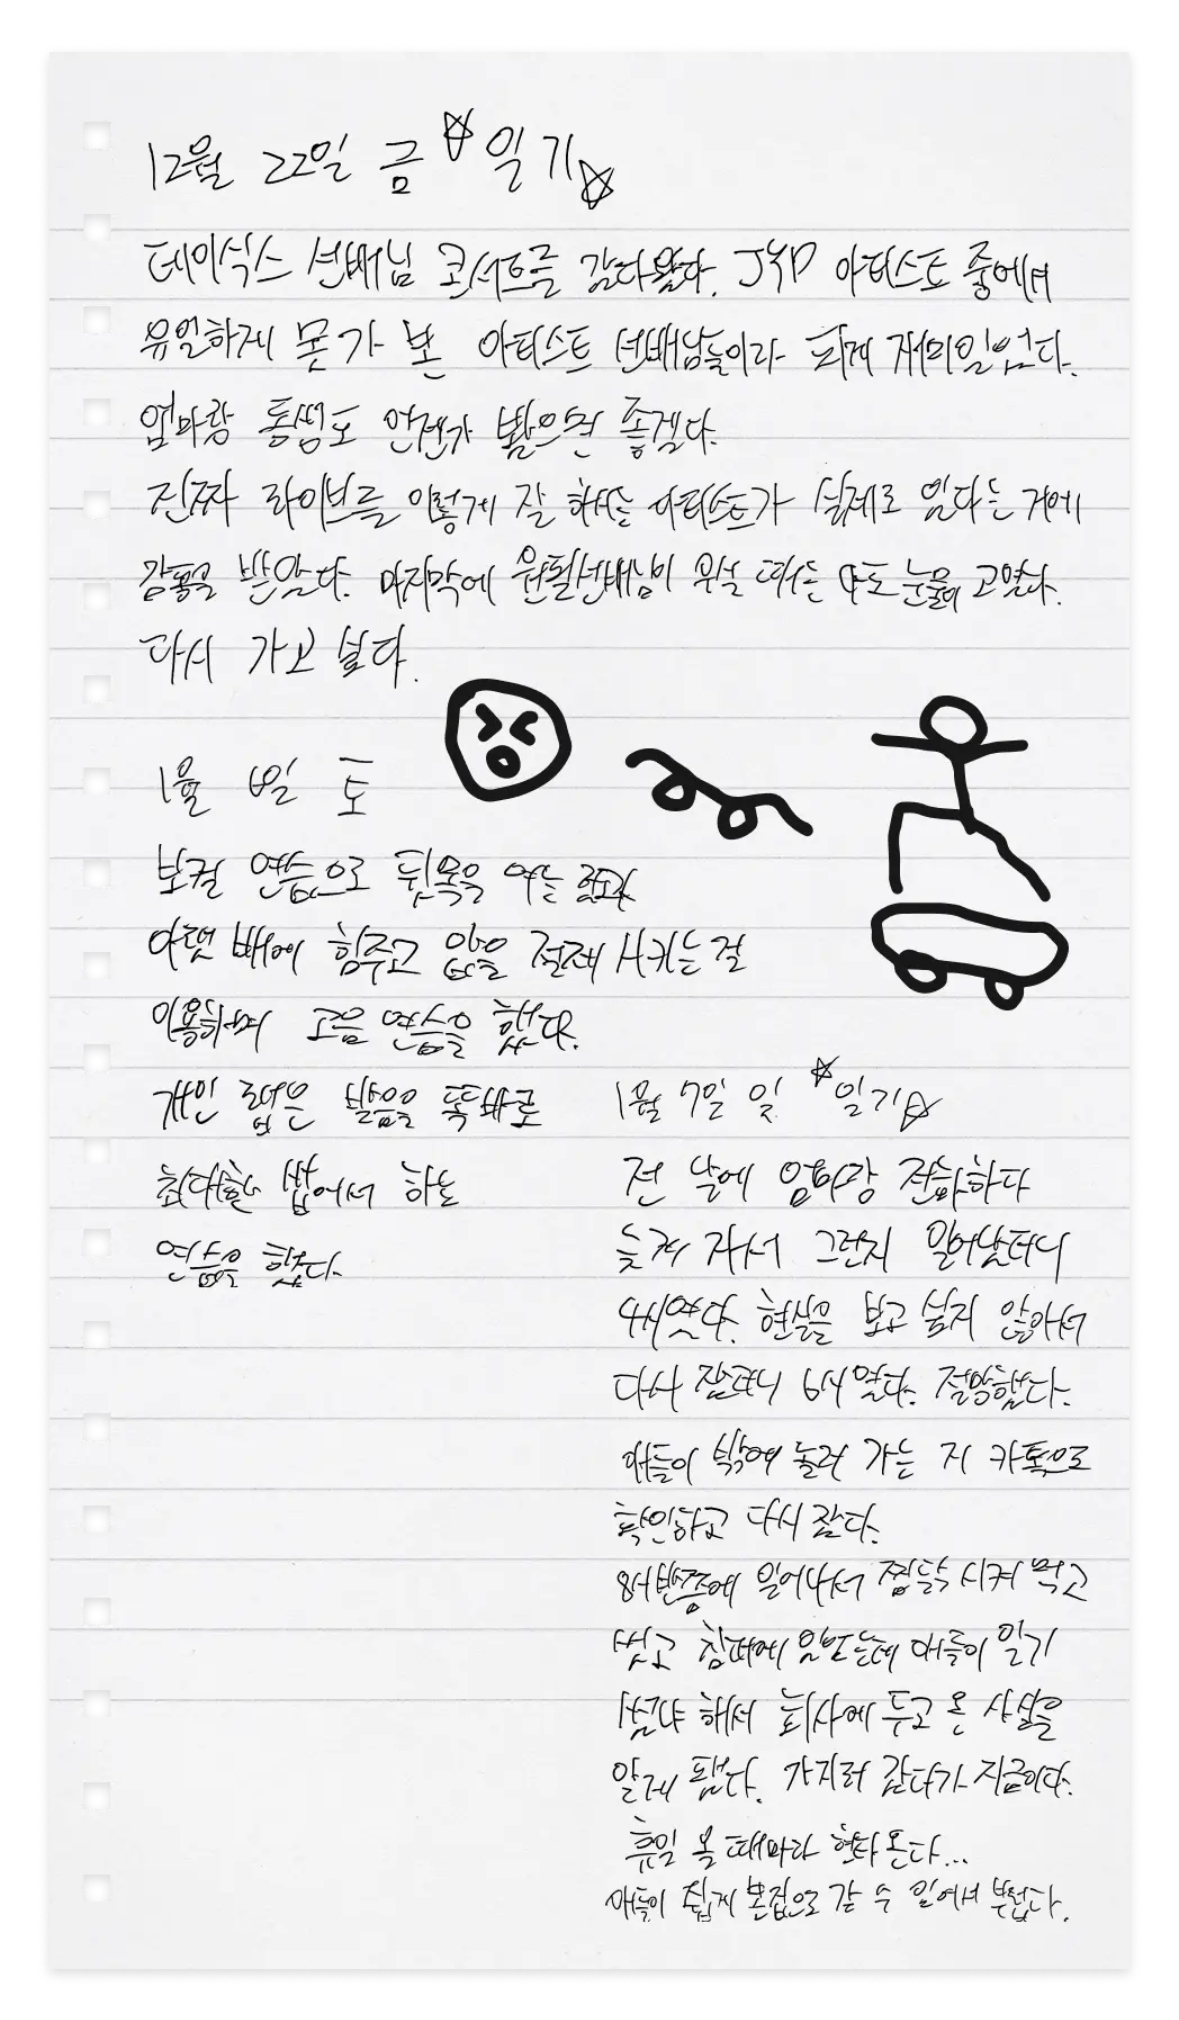 12월 22일 금 ☆일기☆
데이식스 선배님 콘서트를 갔다왔다. JYP 아티스트 중에서
유일하게 못 가 본 아티스트 선배님들이라 되게 재미있었다.
엄마랑 동생도 언젠가 봤으면 좋겠다.
진짜 라이브를 이렇게 잘 하시는 아티스트가 실제로 있다는 거에
감동을 받았다. 마지막에 원필선배님이 우실 때는 나도 눈물이 고였다.
다시 가고 싶다.
1월 6일 토
보컬 연습으로 뒷목을 여는
아랫 배에 힘주고 압을 절제 시키는 걸
이용하며 고음 연습을 했다.
개인 랩은 발음을 똑바로
최대한 씹어서 하는
연습을 했다.
1월 7일 일 ☆일기☆
전 날에 엄마랑 전화하다
늦게 자서 그런지 일어났더니
4시였다. 현실을 보고 싶지 않아서
다시 잤더니 6시였다. 절망했다.
애들이 밖에 놀러 가는 지 카톡으로
확인하고 다시 잤다.
8시반쯤에 일어나서 찜닭 시켜 먹고
씻고 침대에 있었는데 애들이 일기
썼냐 해서 회사에 두고 온 사실을
알게 됐다. 가지러 갔다가 지금이다.
휴일 올 때마다 현타 온다...
애들이 쉽게 본집으로 갈 수 있어서 부럽다.